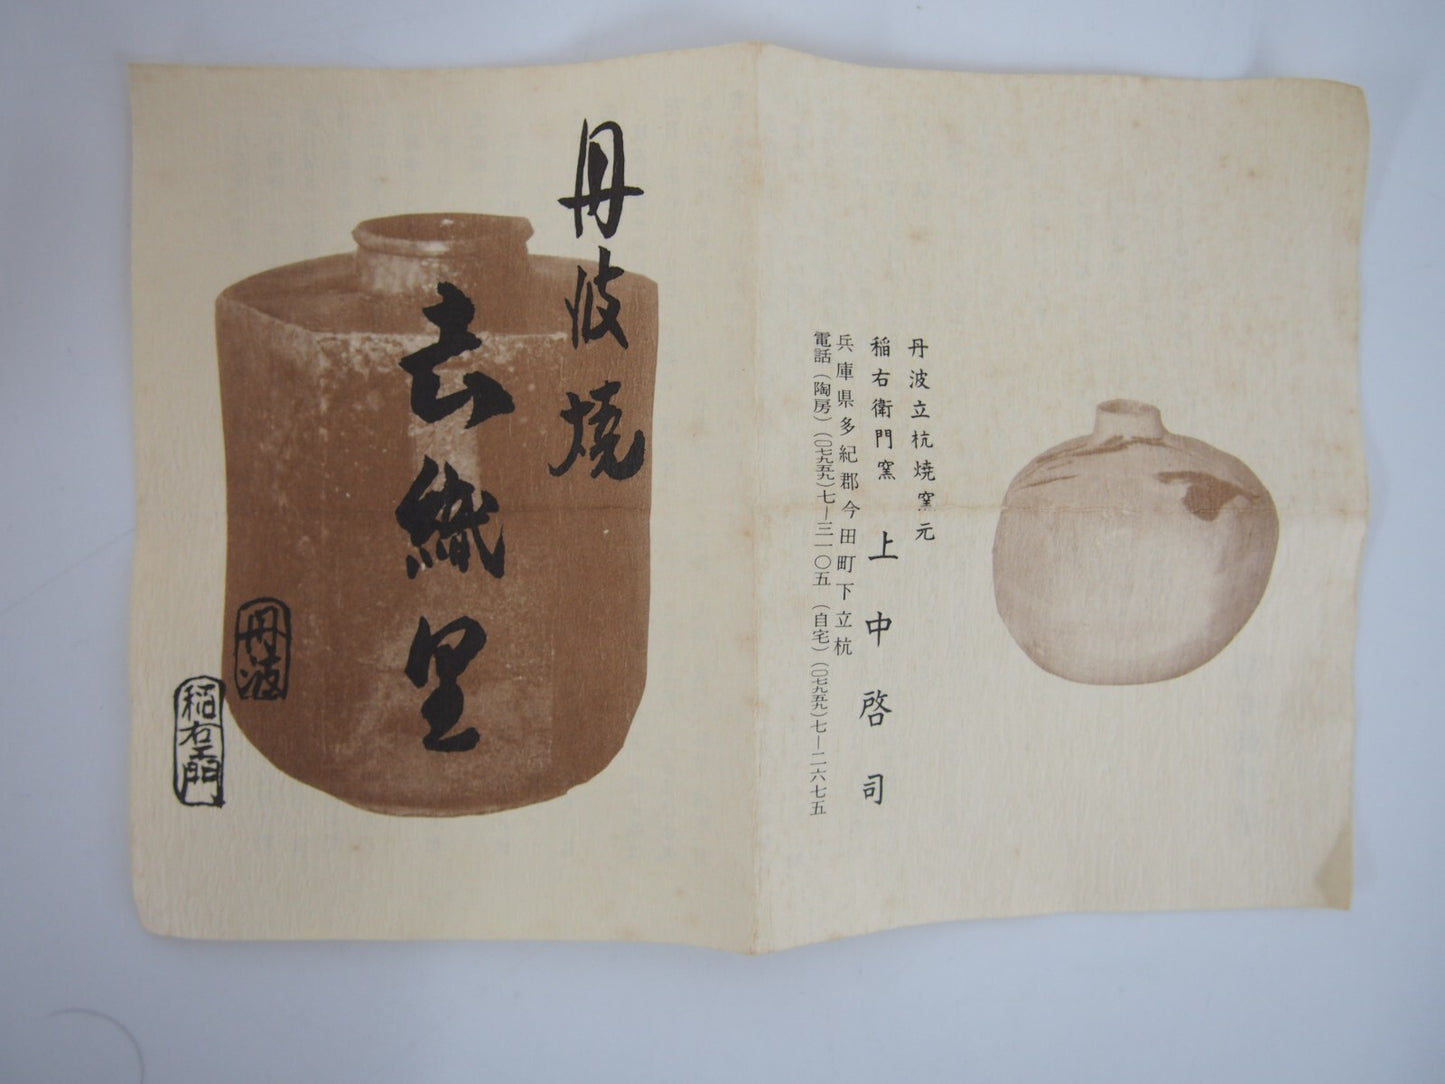 丹波立杭焼窯元
稲右衛門窯 上中啓司
兵庫県多紀郡今田町下立杭
電話(陶房)(〇七九五九)七―三一〇五 (自宅)(〇七九五九)七―二六七五
丹波燒
去織里
丹波
稲右エ門